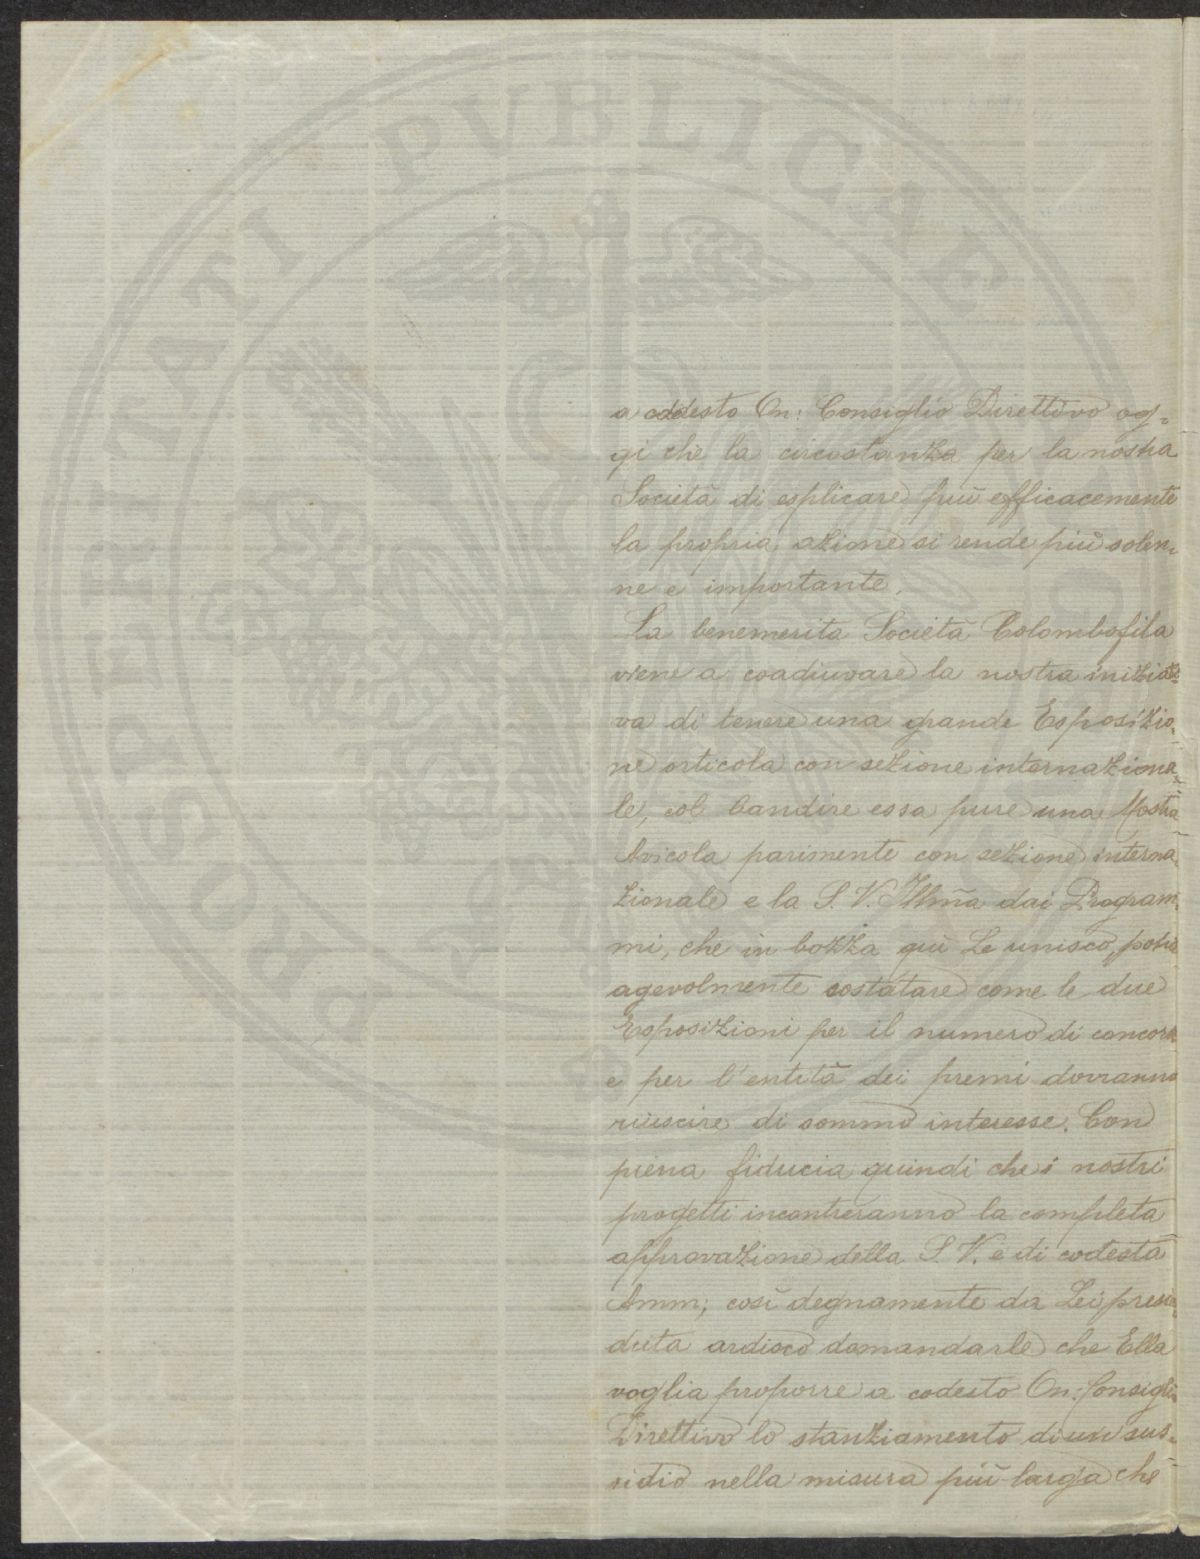 PROSPERITATI PVBLICAE
a codesto On: Consiglio Direttivo og-
gi che la circostanza per la nostra
Società di esplicare più efficacemente
la propria azione si rende più solen-
ne e importante.
La benemerita Società Colombofila
viene a coadiuvare la nostra iniziati-
va di tenere una grande Esposizio-
ne orticola con sezione internaziona-
le, col bandire essa pure una Mostra
Avicola parimente con sezione interna-
zionale e la S. V. Illm̃a dai Program-
mi, che in bozza qui Le unisco, potrà
agevolmente costatare come le due
Esposizioni per il numero di concorsi
e per l'entità dei premi dovranno
riuscire di sommo interesse. Con
piena fiducia quindi che i nostri
progetti incontreranno la completa
approvazione della S. V. e di codesta
Amm; così degnamente da Lei presie-
duta ardisco domandarle che Ella
voglia proporre a codesto On: Consiglio
Direttivo lo stanziamento di un sus-
sidio nella misura più larga che